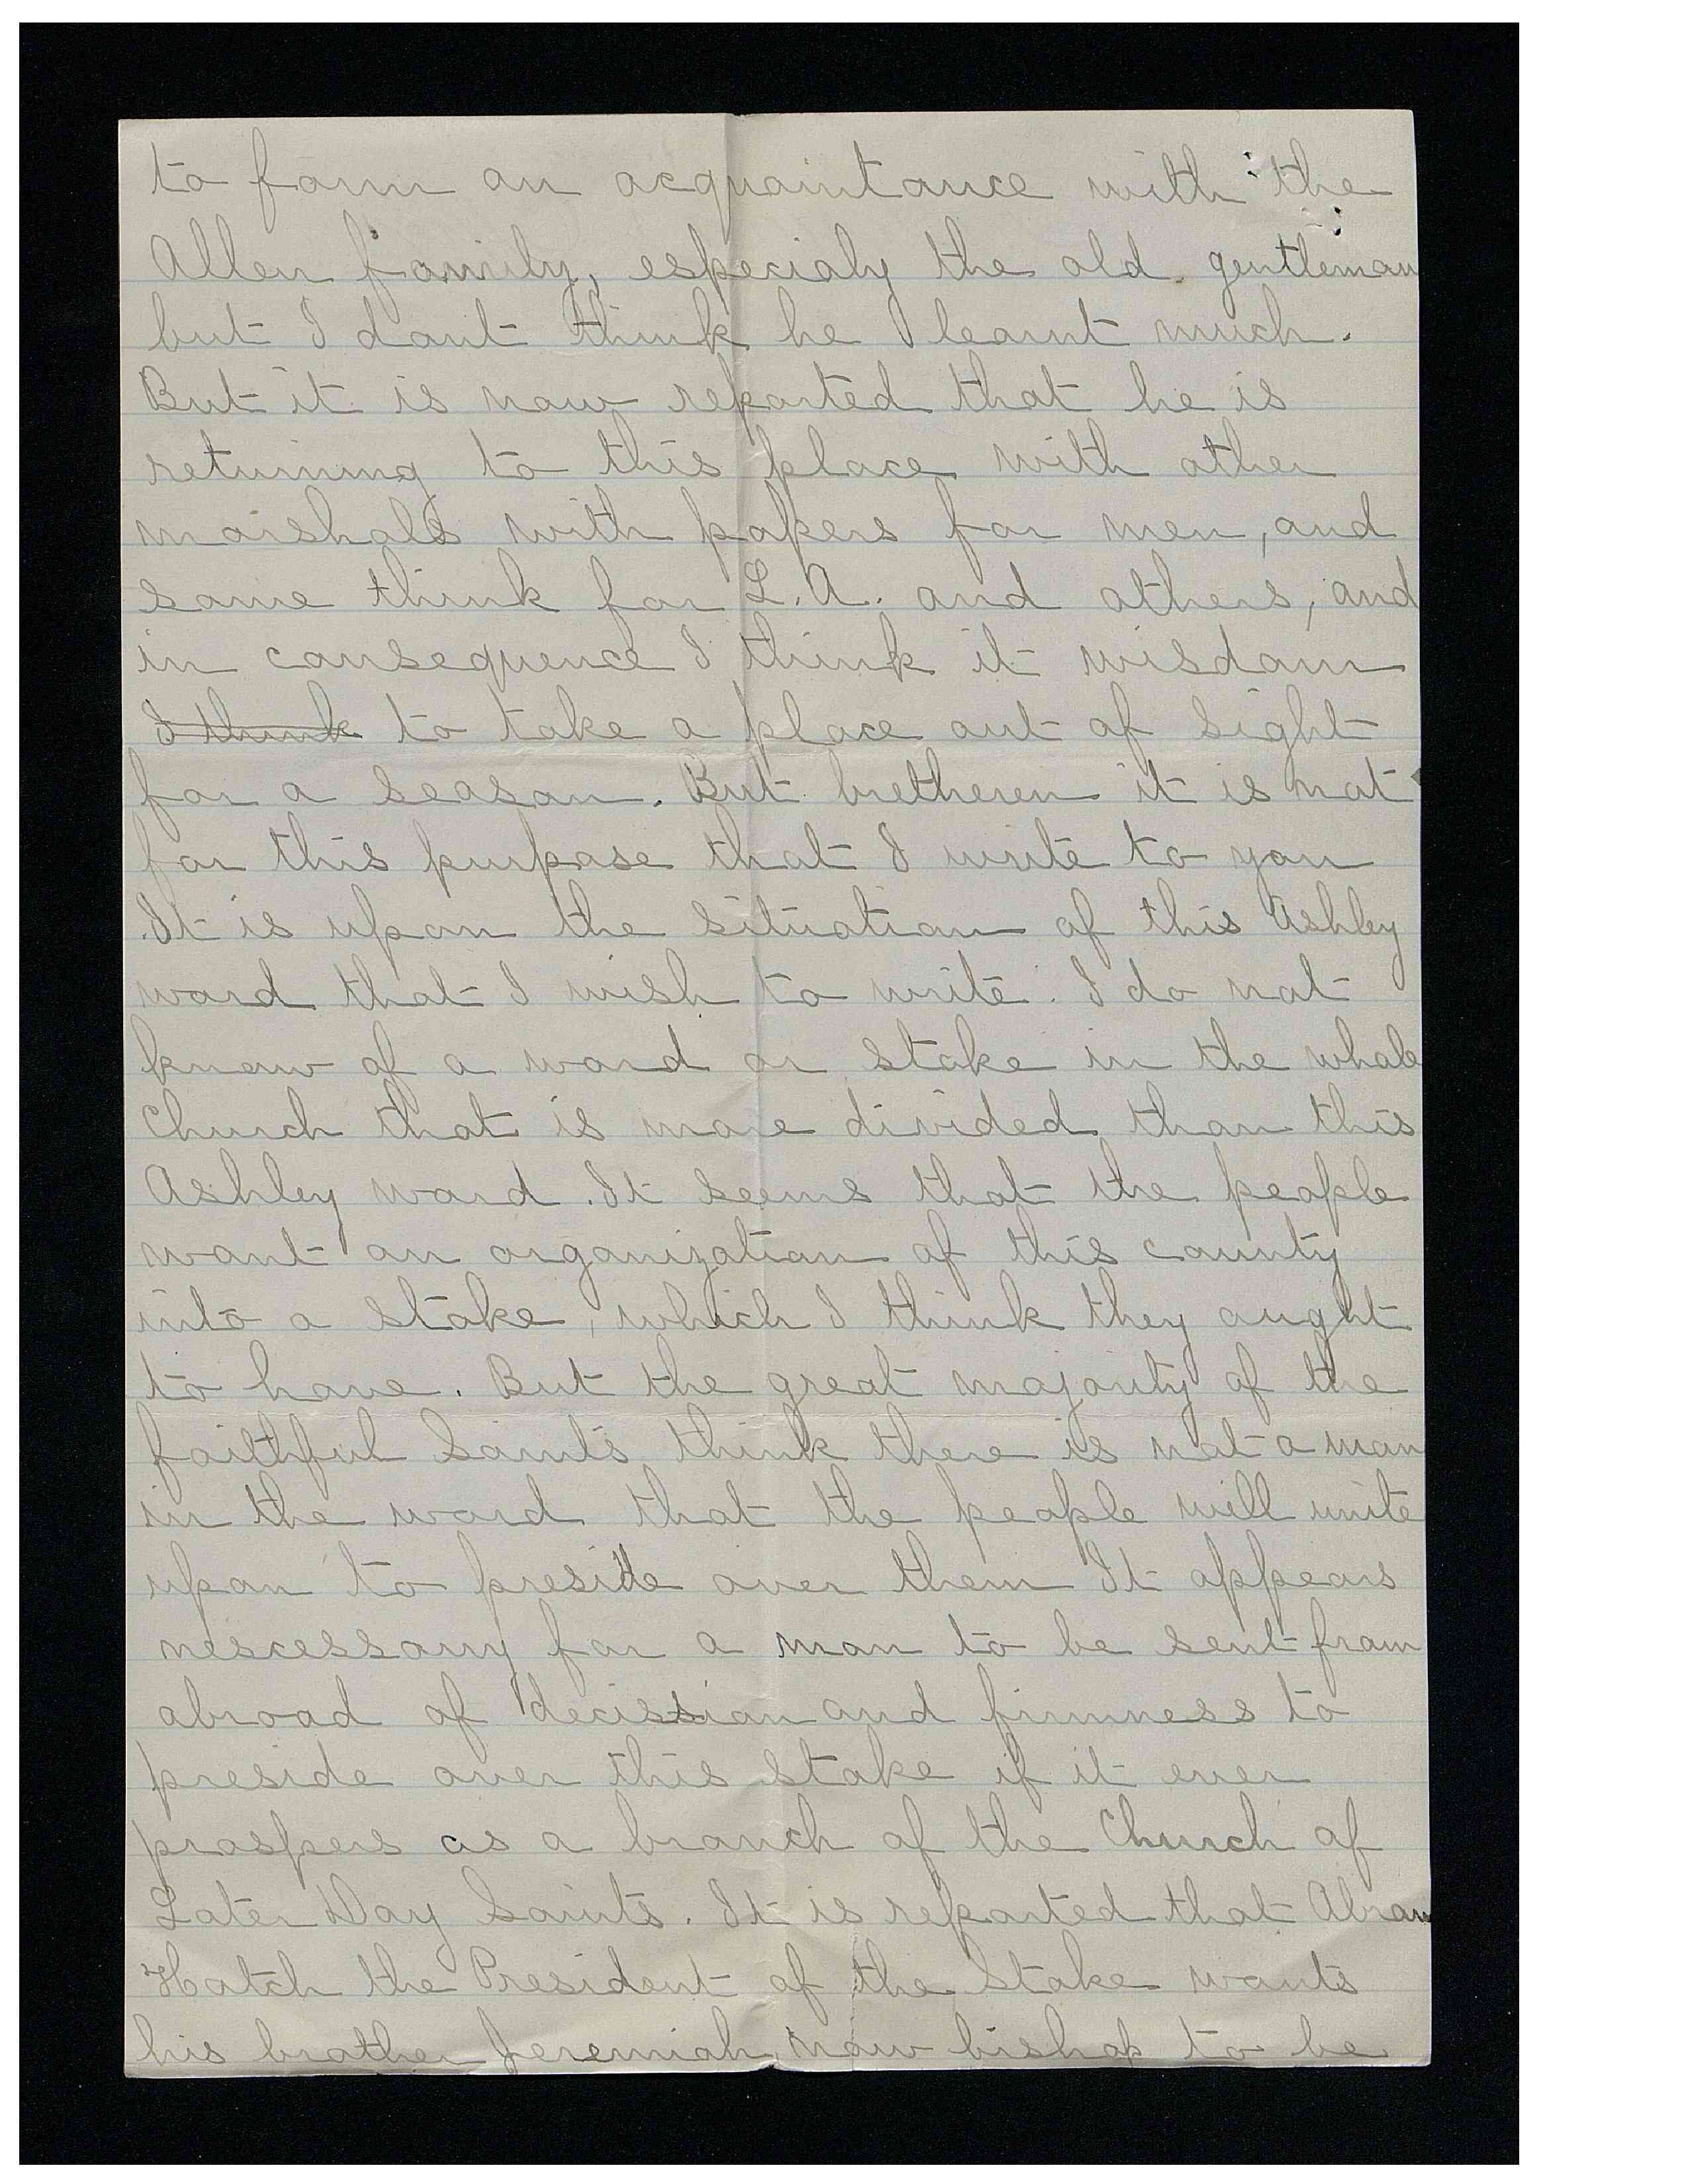 to form an acquaintance with the
Allen family, especialy the old gentleman
but I dont think he learnt much.
But it is now reported that he is
returning to this place with other
marshals with papers for men, and
some think for L.A. and others, and
in consequence I think it wisdom
I think to take a place out of sight
for a season. But bretheren it is not
for this purpose that I write to you
It is upon the situation of this Ashley
ward that I wish to write. I do not
know of a ward or stake in the whole
Church that is more divided than this
Ashley ward. It seems that the people
want an organization of this county
into a stake, which I think they ought
to have. But the great majority of the
faithful Saints think there is not a man
in the ward that the people will unite
upon to preside over them It appears
nescessary for a man to be sent from
abroad of decission and firmness to
preside over this stake if it ever
prospers as a branch of the Church of
Later Day Saints. It is reported that Abram
Hatch the President of the Stake wants
his brother Jeremiah, now bishop to be